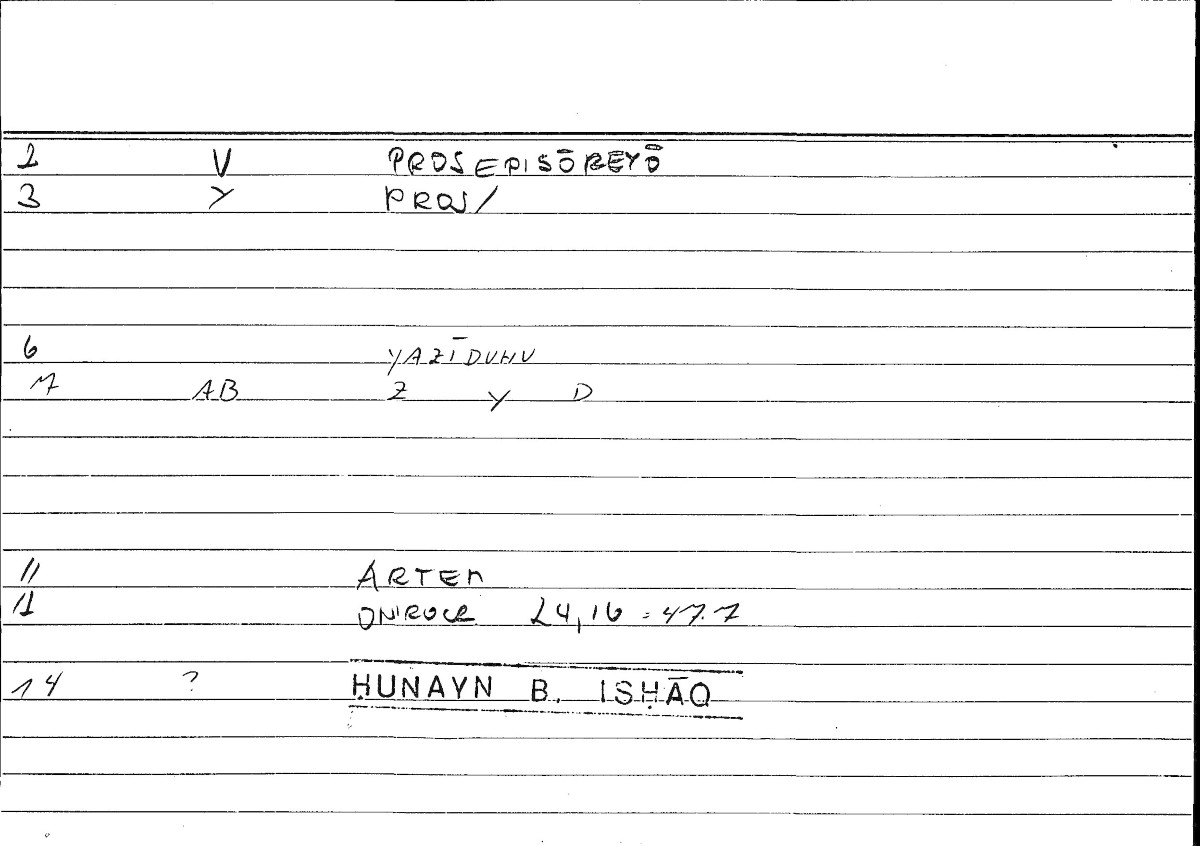 2 V PROSEPISŌREYŌ
3 Y PROS/
6 YAZĪDUHU
7 AB Z Y D
11 ARTEM
12 ONIROCR 24,16 = 47.7
14 ? ḤUNAYN B. ISḤĀQ